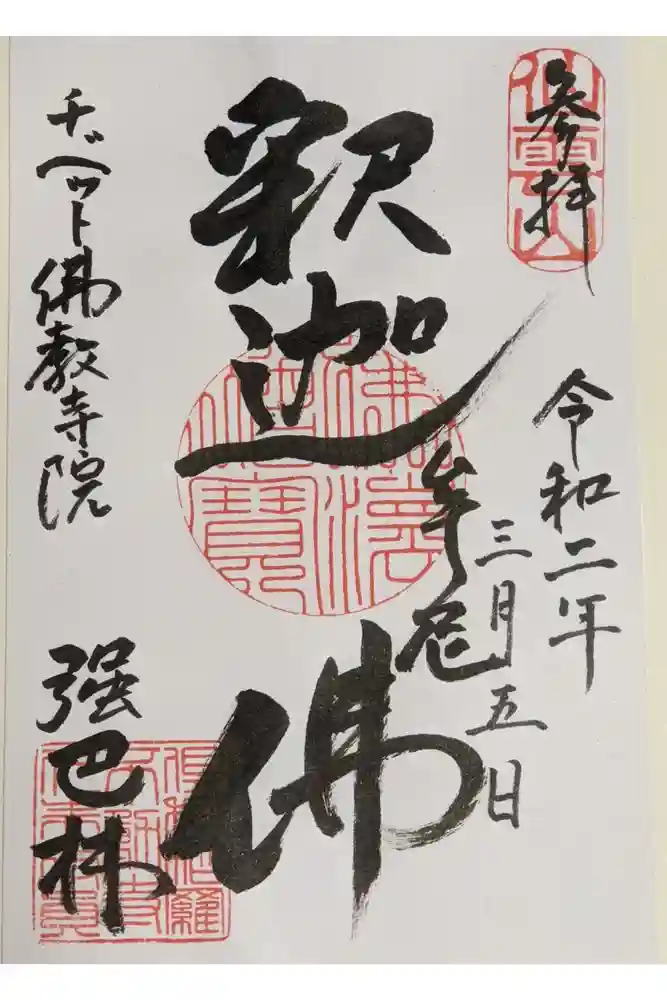 参拝
令和二年
三月五日
釈迦牟尼佛
チベット佛教寺院
强巴林